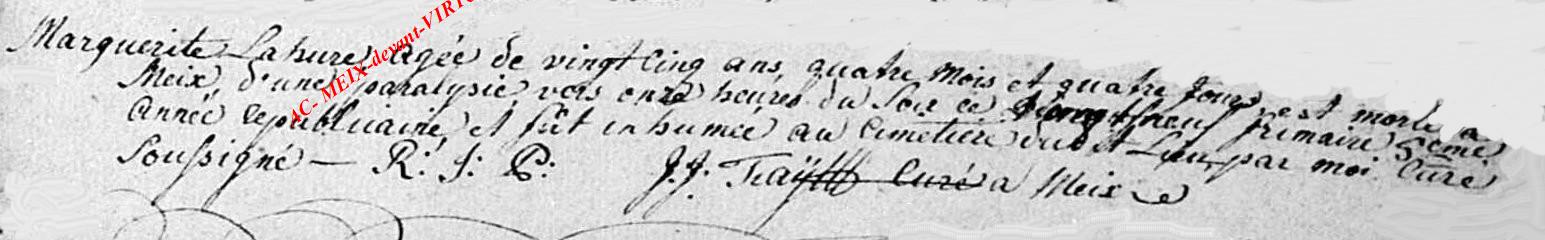 Marguerite Lahure agée de vingt cinq ans, quatre mois et quatre jours, est morte a
Meix, d'une paralysie vers onze heures du soir ce vingt neuf frimaire 5eme
année republicaine, et fût inhumée au cimetiere dudit Lieu par moi Curé
Soussigné — R. I. P. J. J. curé a Meix
AC- MEIX-devant-VIRTO